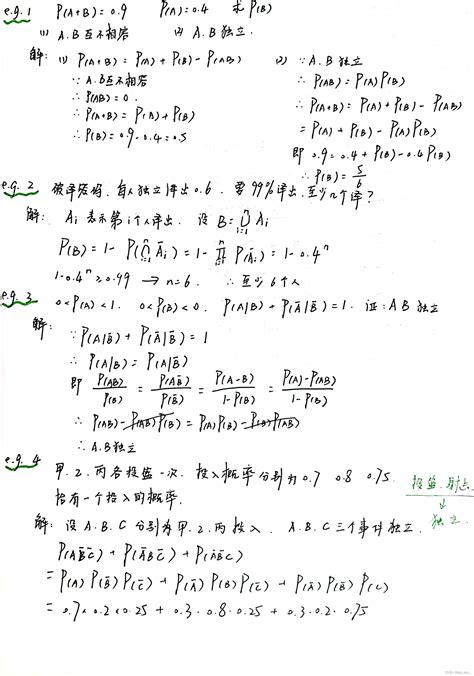 e.g.1 P(A+B)=0.9 P(A)=0.4 求P(B)
(1) A.B互不相容 (2) A.B独立.
解: (1) P(A+B)=P(A)+P(B)-P(AB)
∵ A.B互不相容
∴ P(AB)=0.
∴ P(A+B)=P(A)+P(B)
∴ P(B)=0.9-0.4=0.5
(2) ∵ A.B独立
∴ P(AB)=P(A)P(B)
∴ P(A+B)=P(A)+P(B)-P(AB)
=P(A)+P(B)-P(A)P(B)
即 0.9=0.4+P(B)-0.4P(B)
∴ P(B)=5/6
e.g.2 破译密码, 每人独立译出0.6, 要99%译出, 至少几个译?
解: Ai 表示第i个人译出. 设 B=⋃_{i=1}^{n} Ai
P(B)=1-P(⋂_{i=1}^{n} Āi)=1-∏_{i=1}^{n} P(Āi)=1-0.4^n
1-0.4^n≥0.99 → n=6. ∴至少6个人
e.g.3 0<P(A)<1. 0<P(B)<0. P(A|B)+P(Ā|B̄)=1. 证:AB独立
解: ∵ P(A|B̄)+P(Ā|B̄)=1
∴ P(A|B)=P(A|B̄)
即 P(AB)/P(B)=P(AB̄)/P(B̄)=P(A-B)/(1-P(B))=(P(A)-P(AB))/(1-P(B))
∴ P(AB)-P(AB)P(B)=P(A)P(B)-P(B)P(AB)
∴ A.B独立
e.g.4 甲.乙.丙各投篮一次. 投入概率分别为0.7 0.8 0.75.
恰有一个投入的概率.
投篮.射点
↓
独立.
解: 设A.B.C分别为甲.乙.丙投入. A.B.C三个事件独立.
P(AB̄C̄)+P(ĀBC̄)+P(ĀB̄C)
=P(A)P(B̄)P(C̄)+P(Ā)P(B)P(C̄)+P(Ā)P(B̄)P(C)
=0.7×0.2×0.25+0.3·0.8·0.25+0.3·0.2·0.75